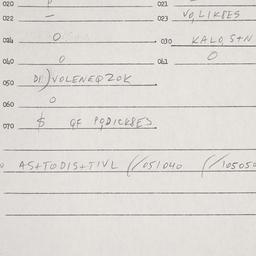 020 021
022 – 023 VOLIKBES
024 0 030 KALOS+N
040 0 041 0
050 DI)VOLENEQZOK
060 0
070 $ QF PQDICKBES
AS+TODIS+TIVL (/051040 (/105050